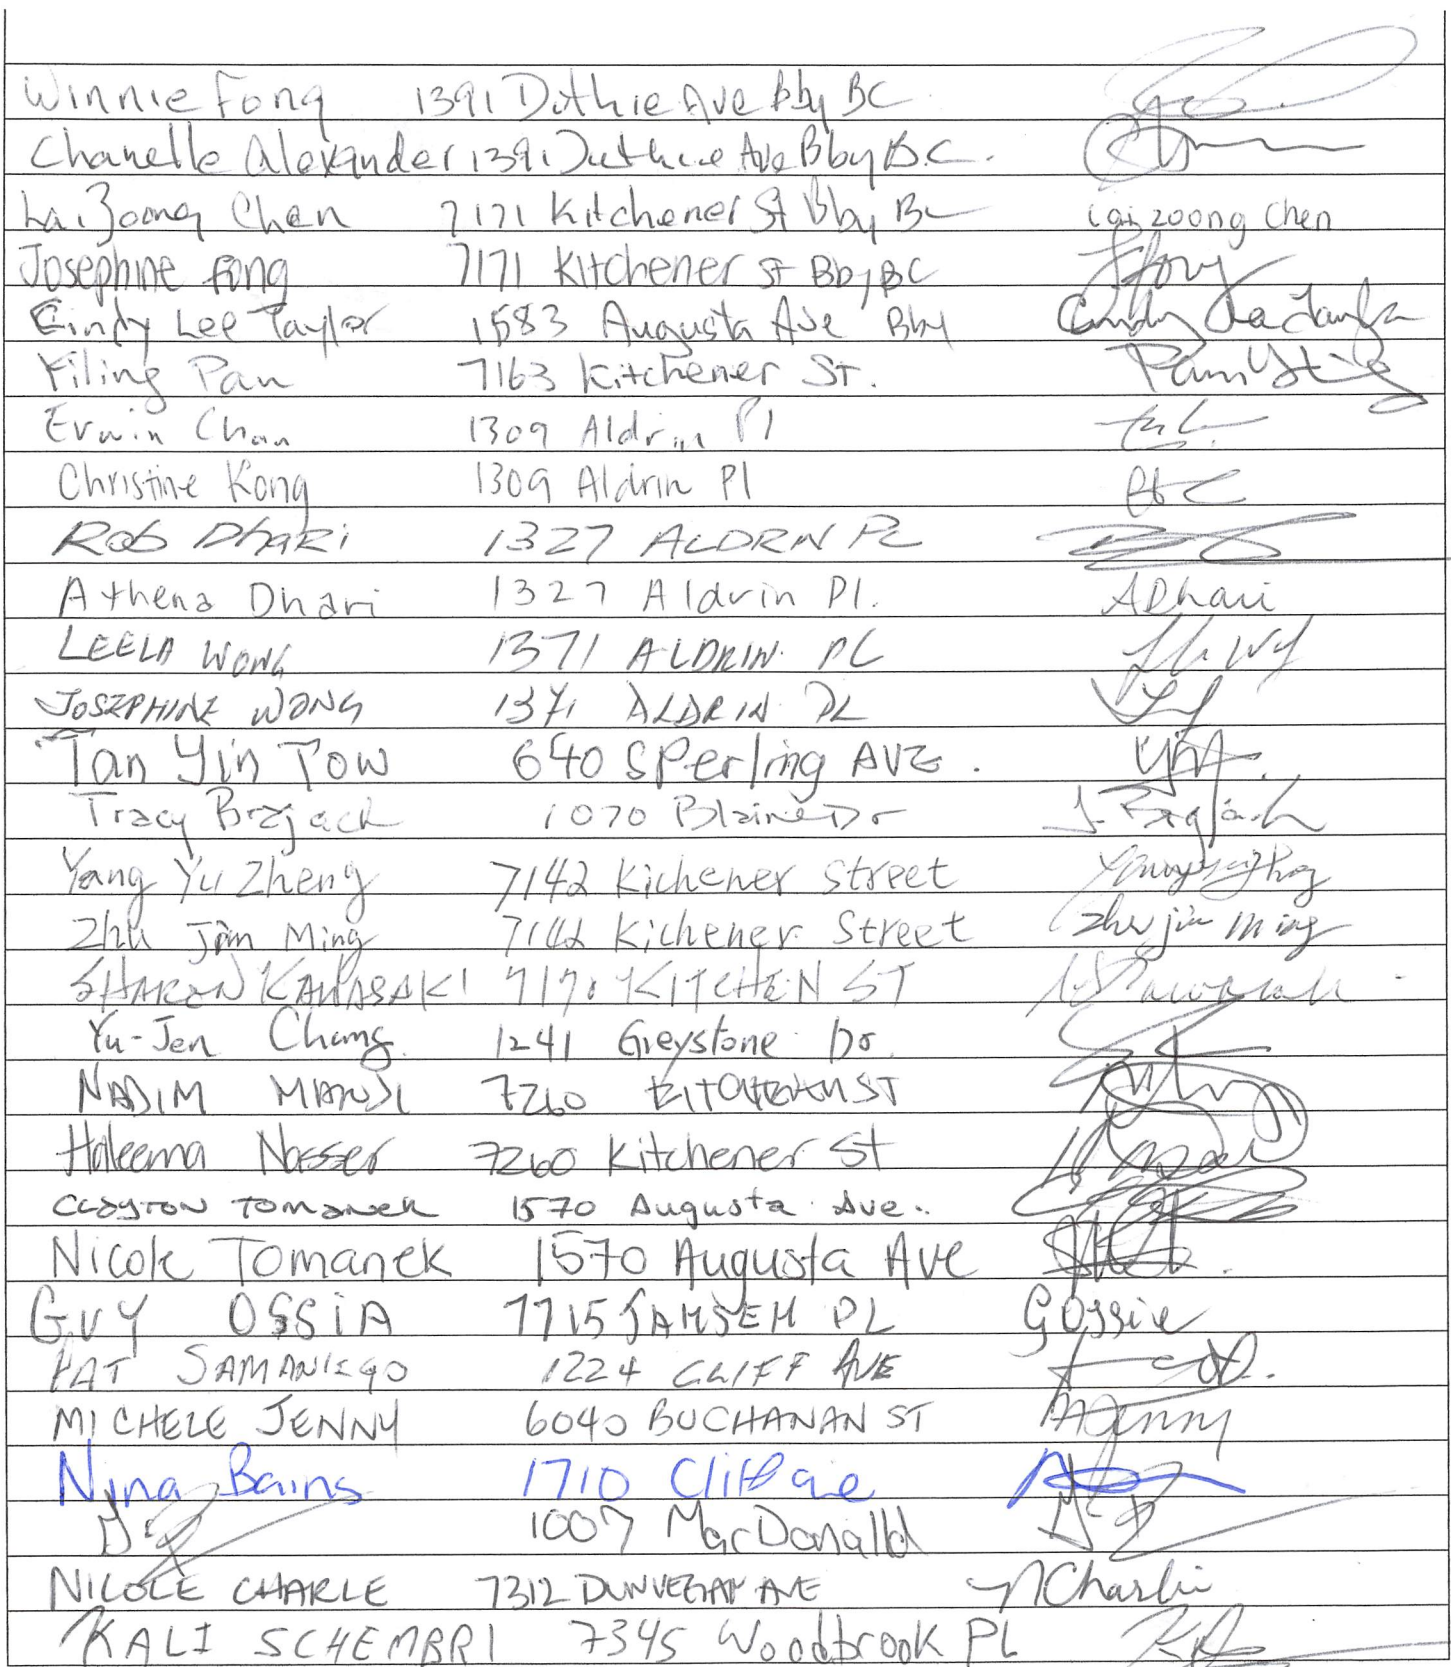 Winnie Fong 1391 Duthie Ave Bby BC
Chanelle Alexander 1391 Duthie Ave Bby B.C.
Lai Zoong Chen 7171 Kitchener St Bby BC Lai Zoong Chen
Josephine Fong 7171 Kitchener St Bby BC JFong
Cindy Lee Taylor 1583 Augusta Ave Bby Cindy Lee Taylor
Yiling Pan 7163 Kitchener St. Pan Yiling
Erwin Chan 1309 Aldrin Pl
Christine Kong 1309 Aldrin Pl
Rob Dhari 1327 ALDRIN PL
Athena Dhari 1327 Aldrin Pl. ADhari
LEELA WONG 1371 ALDRIN PL
JOSEPHINE WONG 1371 ALDRIN PL
Tan Yin Tow 640 SPerling AVE.
Tracy Brajack 1070 Blaine Dr T. Brajack
Yang Yu Zheng 7142 Kichener Street Yang Yu Zheng
Zhu Jim Ming 7142 Kichener Street Zhu jin ming
SHARON KAWASAKI 7170 KITCHEN ST
Yu-Jen Chang 1241 Greystone Dr.
NADIM MAWJI 7260 ST
Haleema Nasser 7260 Kitchener St
CLAYTON TOMANEK 1570 Augusta Ave.
Nicole Tomanek 1570 Augusta Ave
GUY OSSIA 7715 JAMSEH PL GOssia
PAT SAMANIEGO 1224 CLIFF AVE
MICHELE JENNY 6040 BUCHANAN ST MJenny
Nina Bains 1710 Cliff ave
1007 MacDonalld
NICOLE CHARLE 7312 DUNVEGAN AVE NCharlie
KALI SCHEMBRI 7345 Woodbrook PL